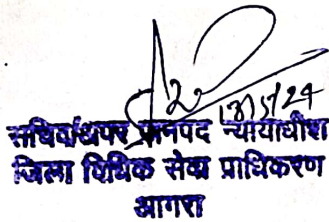 13/5/24
सचिव/अपर जनपद न्यायाधीश
जिला विधिक सेवा प्राधिकरण
आगरा